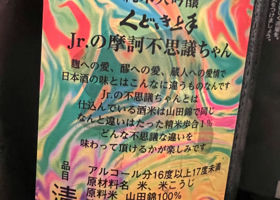 純米大吟醸
くどき上手
Jr.の摩訶不思議ちゃん
麹への愛、醪への愛、蔵人への愛情で
日本酒の味とはこんなに違うものなんです
Jr.の不思議ちゃんとは
仕込んでいる酒米は山田錦で同じ
なんと違いはたった精米歩合1%
どんな不思議な違いを
味わって頂けるかが楽しみです
アルコール分16度以上17度未満
原材料名 米、米こうじ
原料米 山田錦100%
品目
清